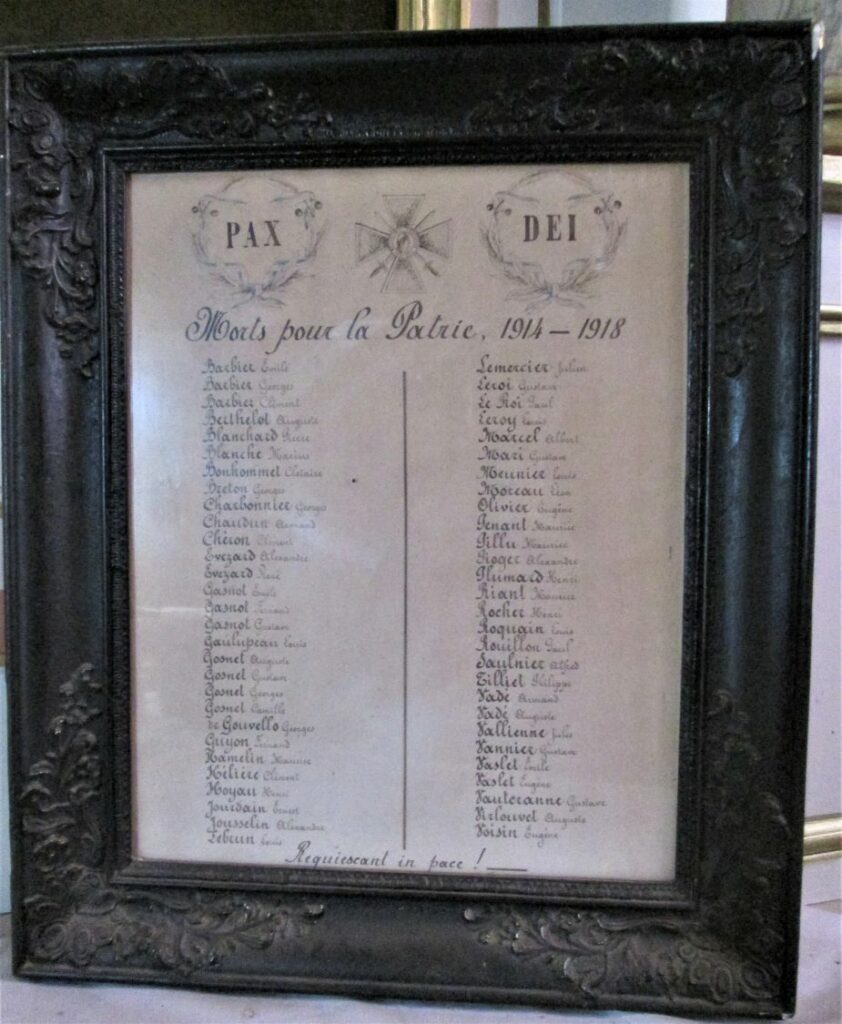 PAX
DEI
Morts pour la Patrie, 1914 — 1918
Barbier Emile
Barbier Georges
Barbier Clément
Berthelot Auguste
Blanchard Pierre
Blanche Marius
Bonhommet Clotaire
Breton Georges
Charbonnier Georges
Chaudun Armand
Chéron Clément
Evezard Alexandre
Evezard René
Gasnot Emile
Gasnot Fernand
Gasnot Gustave
Gaulupeau Louis
Gosnet Auguste
Gosnet Gustave
Gosnet Georges
Gosnet Camille
de Gouvello Georges
Guyon Fernand
Hamelin Maurice
Hélière Clément
Hoyau Henri
Jourdain Ernest
Jousselin Alexandre
Lebrun Louis
Lemercier Julien
Leroi Gustave
Le Roi Paul
Leroy Louis
Marcel Albert
Mari Gustave
Meunier Louis
Moreau Léon
Olivier Eugène
Penant Maurice
Pillu Maurice
Roger Alexandre
Plumard Henri
Riant Maurice
Rocher Henri
Roquain Louis
Rouillon Paul
Saulnier Alfred
Tilliet Philippe
Vadé Armand
Vadé Auguste
Vallienne Jules
Vannier Gustave
Vaslet Emile
Vaslet Eugène
Vauteranne Gustave
Virlouvet Auguste
Voisin Eugène
Requiescant in pace !